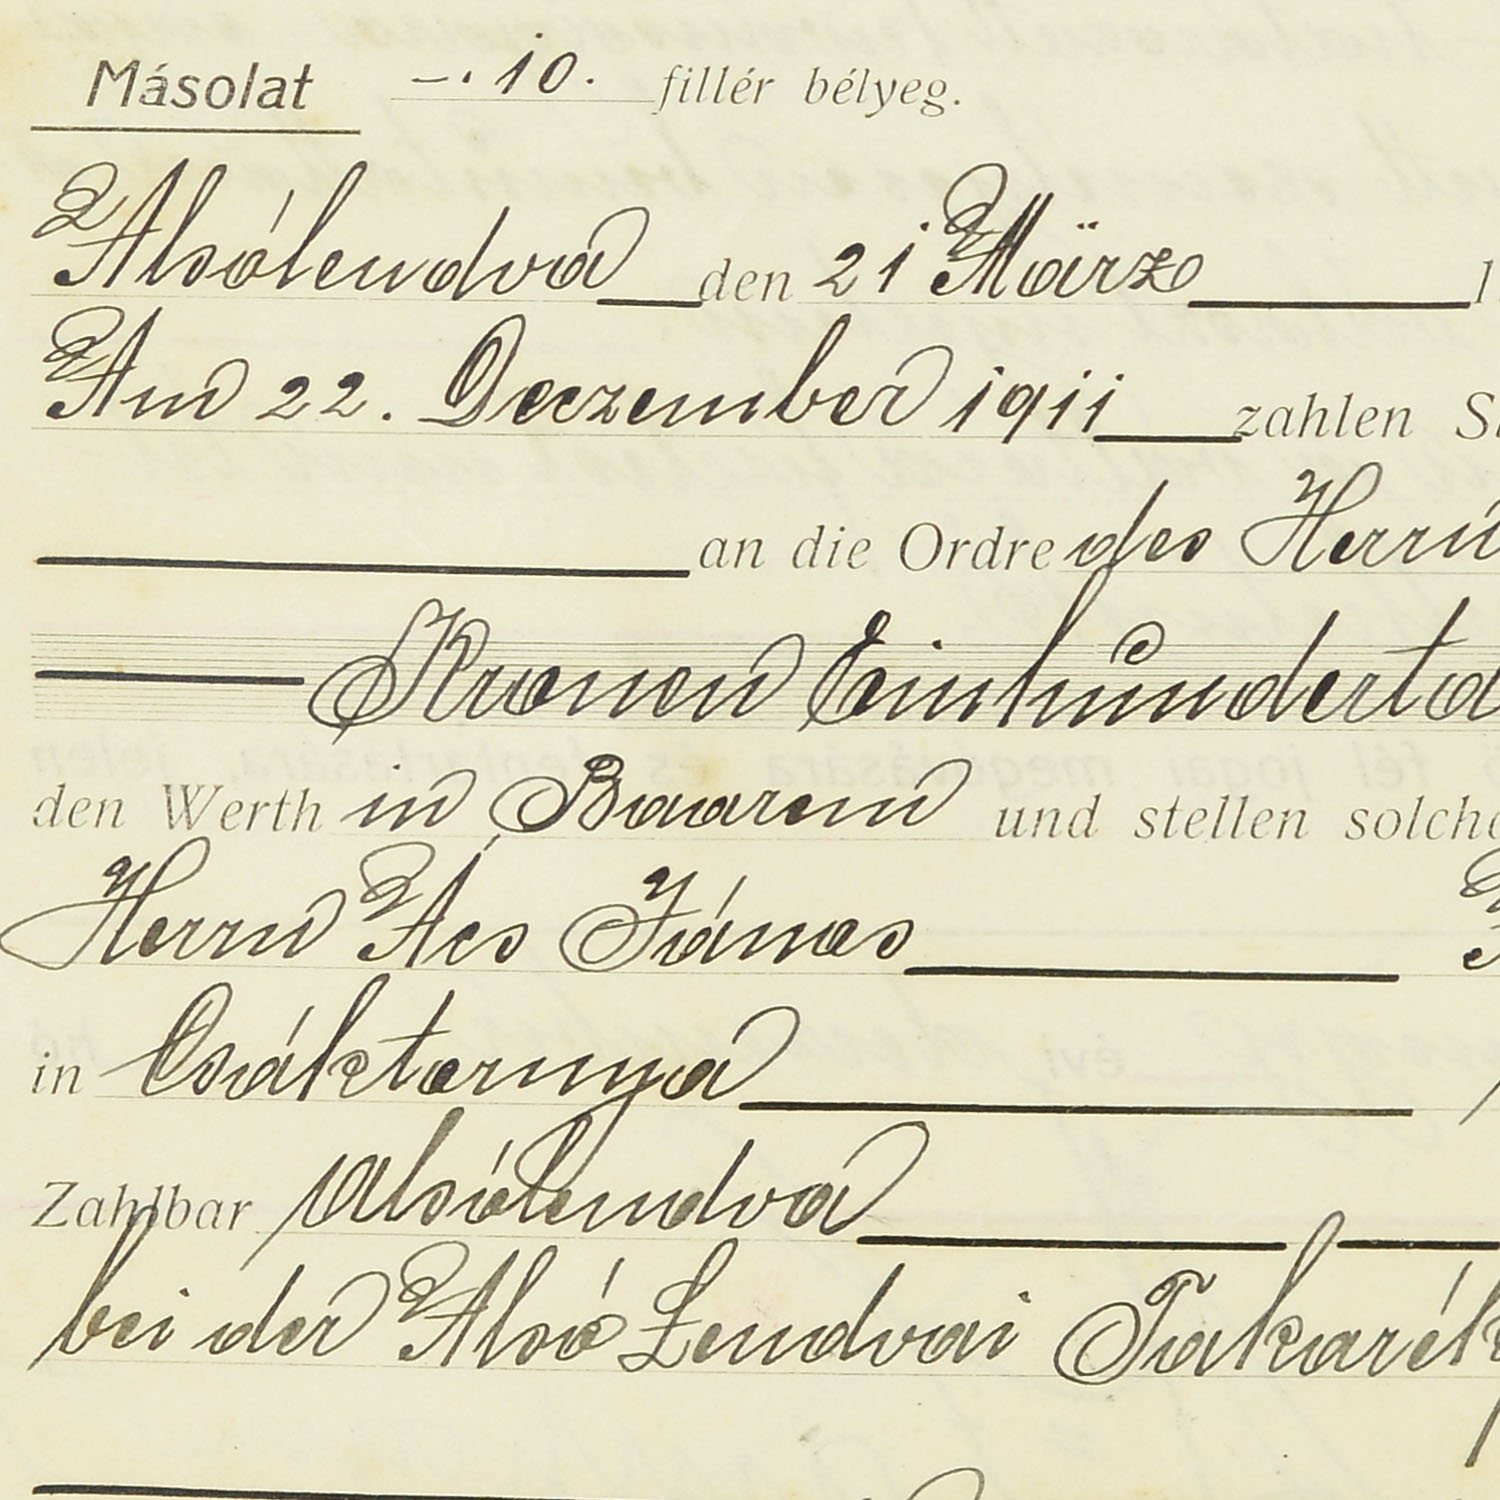 Másolat —.10. fillér bélyeg.
Alsólendva den 21 März 1
Am 22. Deczember 1911 zahlen S
an die Ordre des Herrn
Kronen Einhunderta
den Werth in Baarem und stellen solche
Herrn Ács János
in Csáktornya
Zahlbar Alsólendva
bei der Alsó Lendvai Takarék